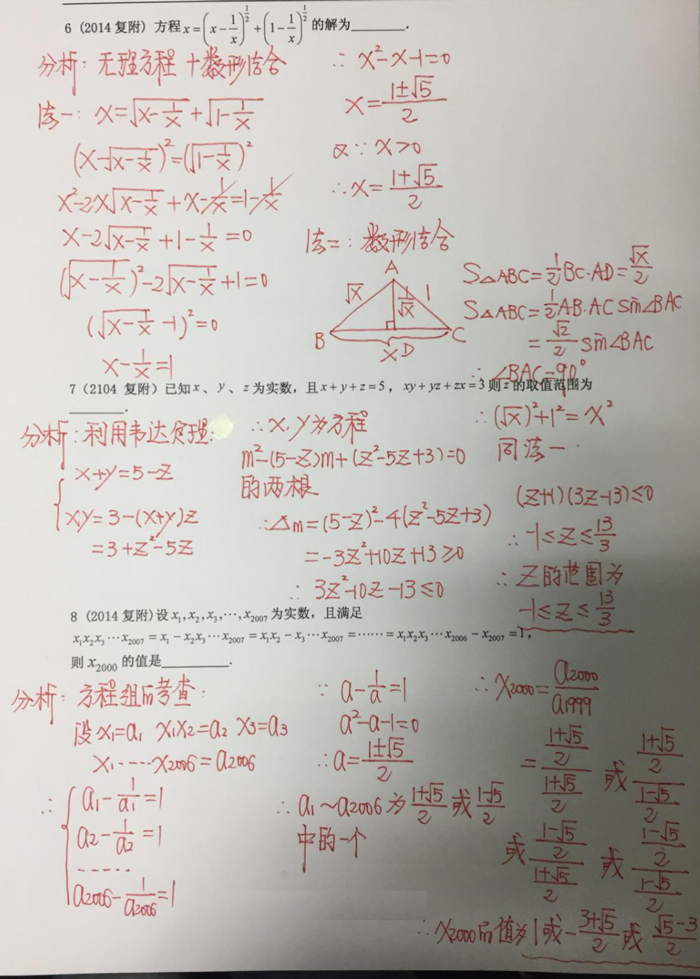 6 (2014复附) 方程 x=(x-1/x)^{1/2}+(1-1/x)^{1/2} 的解为________.
分析: 无理方程+数形结合
法一: x=√(x-1/x)+√(1-1/x)
(x-√(x-1/x))²=(√(1-1/x))²
x²-2x√(x-1/x)+x-1/x=1-1/x
x-2√(x-1/x)+1-1/x=0
(√(x-1/x))²-2√(x-1/x)+1=0
(√(x-1/x)-1)²=0
x-1/x=1
∴ x²-x-1=0
x=(1±√5)/2
又∵ x>0
∴x=(1+√5)/2
法二: 数形结合
A
√x
1/√x
1
B
D
C
x
S△ABC=1/2 BC·AD=√x/2
S△ABC=1/2 AB·AC sin∠BAC
=√x/2 sin∠BAC
∴ ∠BAC=90°
∴(√x)²+1²=x²
同法一.
7(2104 复附)已知x、y、z为实数,且x+y+z=5,xy+yz+zx=3则z的取值范围为
________.
分析: 利用韦达定理:
x+y=5-z
xy=3-(x+y)z
=3+z²-5z
∴x,y为方程
m²-(5-z)m+(z²-5z+3)=0
的两根
∴△m=(5-z)²-4(z²-5z+3)
=-3z²+10z+13≥0
∴ 3z²-10z-13≤0
(z+1)(3z-13)≤0
∴ -1≤z≤13/3
∴ z的范围为
-1≤z≤13/3
8 (2014复附)设 x₁,x₂,x₃,⋯,x₂₀₀₇为实数,且满足
x₁x₂x₃⋯x₂₀₀₇=x₁-x₂x₃⋯x₂₀₀₇=x₁x₂-x₃⋯x₂₀₀₇=⋯⋯=x₁x₂x₃⋯x₂₀₀₆-x₂₀₀₇=1,
则 x₂₀₀₀ 的值是________.
分析: 方程组的考查:
设x₁=a₁ x₁x₂=a₂ x₃=a₃
x₁⋯⋯x₂₀₀₆=a₂₀₀₆
∴ a₁-1/a₁=1
a₂-1/a₂=1
⋯⋯
a₂₀₀₆-1/a₂₀₀₆=1
∵ a-1/a=1
a²-a-1=0
∴a=(1±√5)/2
∴ a₁~a₂₀₀₆为(1+√5)/2或(1-√5)/2
中的一个
∴x₂₀₀₀=a₂₀₀₀/a₁₉₉₉
=((1+√5)/2)/((1+√5)/2) 或 ((1+√5)/2)/((1-√5)/2)
或 ((1-√5)/2)/((1+√5)/2) 或 ((1-√5)/2)/((1-√5)/2)
∴x₂₀₀₀的值为1或-(3+√5)/2或(√5-3)/2